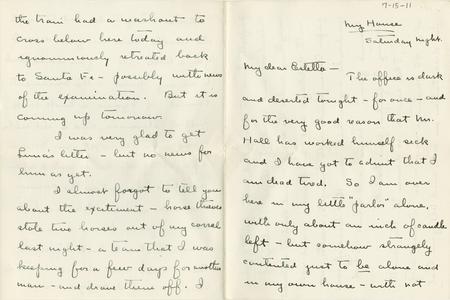 the train had a washout to
cross below here today and
ignominiously retreated back
to Santa Fe - possibly with news
of the examination. But it is
coming up tomorrow.
I was very glad to get
letter - but no news for
him as yet.
I almost forgot to tell you
about the excitement - horse thieves
stole two horses out of my corral
last night - a team that I was
keeping for a few days for another
man - and drove them off. I
7-15-11
My House
Saturday night.
My dear Estella -
The office is dark
and deserted tonight - for once - and
for the very good reason that Mr.
Hall has worked himself sick
and I have got to admit that I
am dead tired. So I am over
here in my little "parlor" alone,
with only about an inch of candle
left - but somehow strangely
contented just to be alone and
in my own house - with not